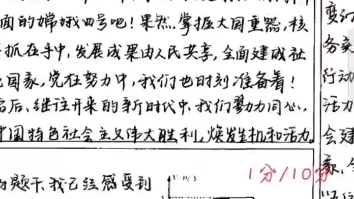 面的嫦娥四号吧！果然，掌握大国重器，核
抓在手中，发展成果由人民共享，全面建成社
国家，究在努力中，我们也时刻准备着！
启后、继往开来的新时代中，我们勠力同心，
中国特色社会主义伟大胜利，焕发生机和活力。
的题干，我已经感受到
1分/10分
务实
行动
活力
会建